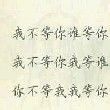 我不等你谁等你
你不等我谁等我
你不等我我等你